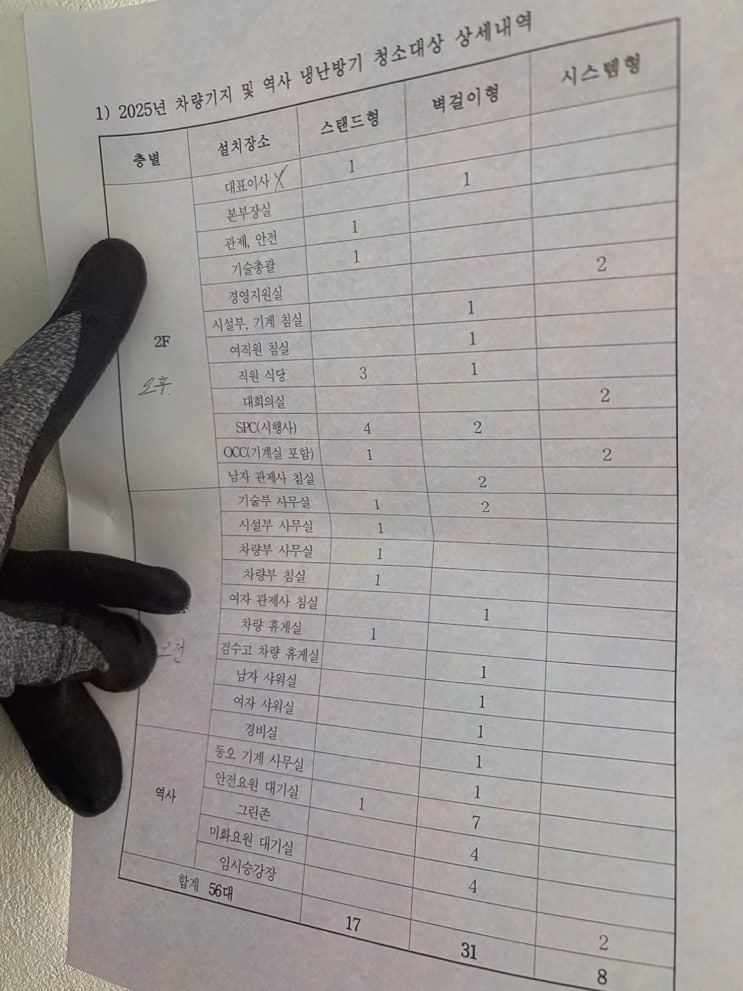 1) 2025년 차량기지 및 역사 냉난방기 청소대상 상세내역
층별 설치장소 스탠드형 벽걸이형 시스템형
대표이사 X 1
본부장실 1
관제, 안전 1
기술총괄 1
경영지원실 2
시설부, 기계 침실 1
2F 여직원 침실 1
오후 직원 식당 3 1
대회의실 2
SPC(시행사) 4 2
OCC(기계실 포함) 1 2
남자 관제사 침실 2
기술부 사무실 1 2
시설부 사무실 1
차량부 사무실 1
차량부 침실 1
여자 관제사 침실 1
오전 차량 휴게실 1
검수고 차량 휴게실 1
남자 샤워실 1
여자 샤워실 1
경비실 1
동오 기계 사무실 1
역사 안전요원 대기실 1 7
그린존 4
미화요원 대기실 4
임시승강장 2
합계 56대 17 31 8